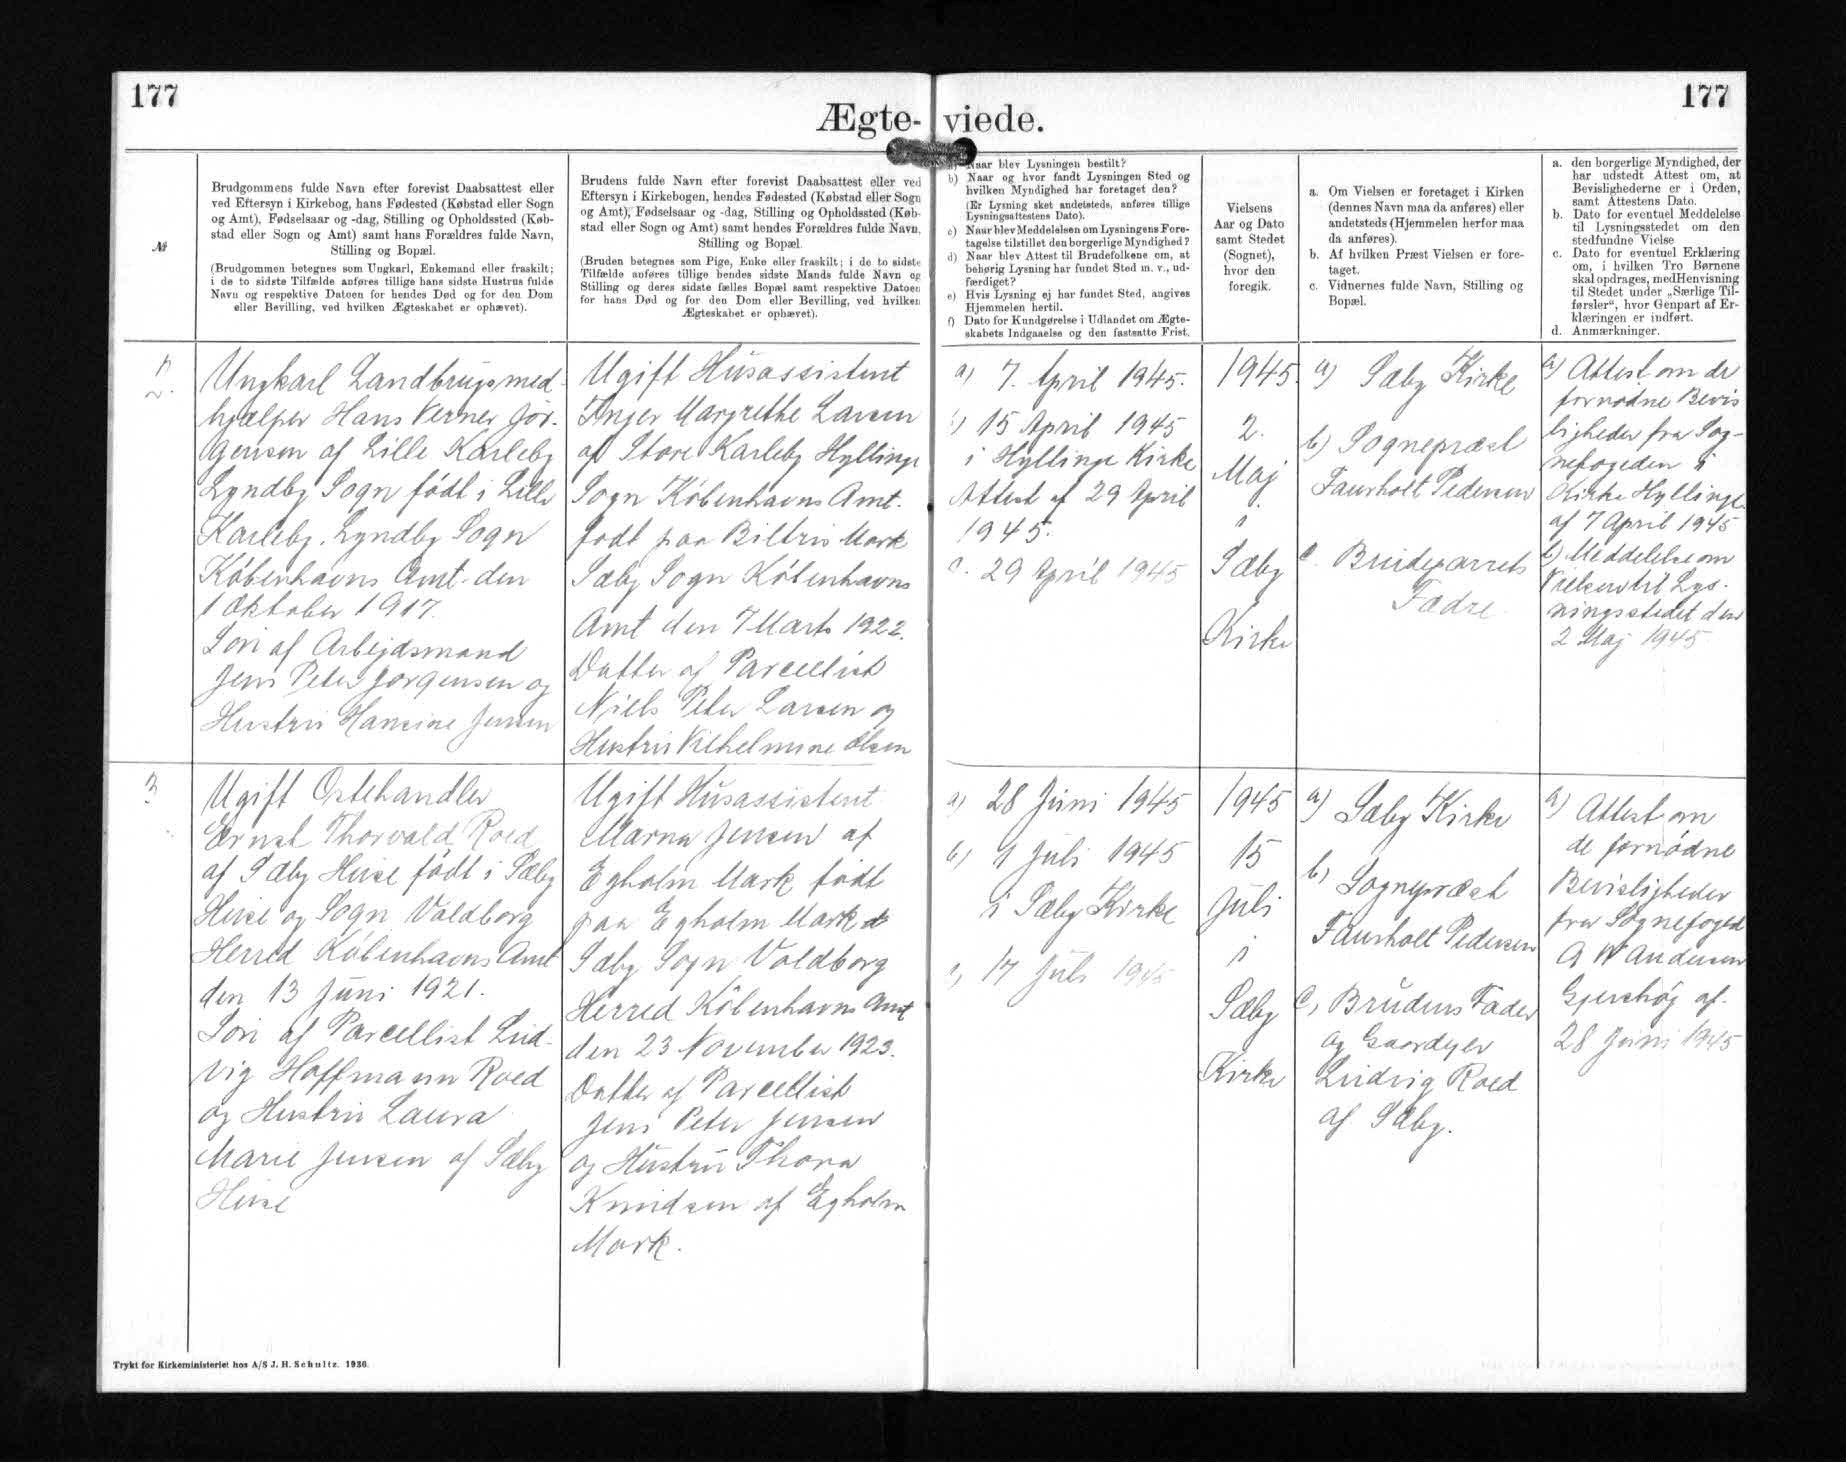 177
177
Ægte-viede.
№
Brudgommens fulde Navn efter forevist Daabsattest eller
ved Eftersyn i Kirkebog, hans Fødested (Købstad eller Sogn
og Amt), Fødselsaar og -dag, Stilling og Opholdssted (Køb-
stad eller Sogn og Amt) samt hans Forældres fulde Navn,
Stilling og Bopæl.
(Brudgommen betegnes som Ungkarl, Enkemand eller fraskilt;
i de to sidste Tilfælde anføres tillige hans sidste Hustrus fulde
Navn og respektive Datoen for hendes Død og for den Dom
eller Bevilling, ved hvilken Ægteskabet er ophævet).
Brudens fulde Navn efter forevist Daabsattest eller ved
Eftersyn i Kirkebogen, hendes Fødested (Købstad eller Sogn
og Amt), Fødselsaar og -dag, Stilling og Opholdssted (Køb-
stad eller Sogn og Amt) samt hendes Forældres fulde Navn,
Stilling og Bopæl.
(Bruden betegnes som Pige, Enke eller fraskilt; i de to sidste
Tilfælde anføres tillige hendes sidste Mands fulde Navn og
Stilling og deres sidste fælles Bopæl samt respektive Datoen
for hans Død og for den Dom eller Bevilling, ved hvilken
Ægteskabet er ophævet).
a) Naar blev Lysningen bestilt?
b) Naar og hvor fandt Lysningen Sted og
hvilken Myndighed har foretaget den?
(Er Lysning sket andetsteds, anføres tillige
Lysningsattestens Dato).
c) Naar blev Meddelelsen om Lysningens Fore-
tagelse tilstillet den borgerlige Myndighed?
d) Naar blev Attest til Brudefolkene om, at
behørig Lysning har fundet Sted m. v., ud-
færdiget?
e) Hvis Lysning ej har fundet Sted, angives
Hjemmelen hertil.
f) Dato for Kundgørelse i Udlandet om Ægte-
skabets Indgaaelse og den fastsatte Frist.
Vielsens
Aar og Dato
samt Stedet
(Sognet),
hvor den
foregik.
a. Om Vielsen er foretaget i Kirken
(dennes Navn maa da anføres) eller
andetsteds (Hjemmelen herfor maa
da anføres).
b. Af hvilken Præst Vielsen er fore-
taget.
c. Vidnernes fulde Navn, Stilling og
Bopæl.
a. den borgerlige Myndighed, der
har udstedt Attest om, at
Bevislighederne er i Orden,
samt Attestens Dato.
b. Dato for eventuel Meddelelse
til Lysningsstedet om den
stedfundne Vielse
c. Dato for eventuel Erklæring
om, i hvilken Tro Børnene
skal opdrages, med Henvisning
til Stedet under „Særlige Til-
førsler“, hvor Genpart af Er-
klæringen er indført.
d. Anmærkninger.
2.
Ungkarl Landbrugsmed-
hjælper Hans Verner Jør-
gensen af Lille Karleby
Lyndby Sogn født i Lille
Karleby. Lyndby Sogn
Københavns Amt den
1 Oktober 1917.
Søn af Arbejdsmand
Jens Peter Jørgensen og
Hustru Hansine Jensen
Ugift Husassistent
Inger Margrethe Larsen
af Store Karleby Hyllinge
Sogn Københavns Amt.
født paa Biltris Mark
Sæby Sogn Københavns
Amt den 7 Marts 1922.
Datter af Parcellist
Niels Peter Larsen og
Hustru Vilhelmine Olsen
a) 7. April 1945.
b) 15 April 1945
i Hyllinge Kirke
Attest af 29 April
1945.
c. 29 April 1945
1945.
2.
Maj
i
Sæby
Kirke
a) Sæby Kirke
b) Sognepræst
Faurholt Pedersen
c. Brudeparrets
Fædre.
a) Attest om de
fornødne Bevis
ligheder fra Sog-
nefogeden i
Kirke Hyllinge
af 7 April 1945
b) Meddelelse om
Vielsen til Lys-
ningsstedet den
2 Maj 1945
3
Ugift Ostehandler
Ernst Thorvald Roed
af Sæby Huse født i Sæby
Huse og Sogn Voldborg
Herred Københavns Amt
den 13 Juni 1921.
Søn af Parcellist Lud-
vig Hoffmann Roed
og Hustru Laura
Marie Jensen af Sæby
Huse
Ugift Husassistent
Marna Jensen af
Egholm Mark født
paa Egholm Mark
Sæby Sogn Voldborg
Herred Københavns Amt
den 23 November 1923.
Datter af Parcellist
Jens Peter Jensen
og Hustru Thora
Knudsen af Egholm
Mark.
a) 28 Juni 1945
b) 1 Juli 1945
i Sæby Kirke
c) 17 Juli 1945
1945
15
Juli
i
Sæby
Kirke
a) Sæby Kirke
b) Sognepræst
Faurholt Pedersen
c, Brudens Fader
og Gaardejer
Ludvig Roed
af Sæby.
a) Attest om
de fornødne
Bevisligheder
fra Sognefoged
A W Andersen
Gjershøj af.
28 Juni 1945
Trykt for Kirkeministeriet hos A/S J. H. Schultz. 1936.